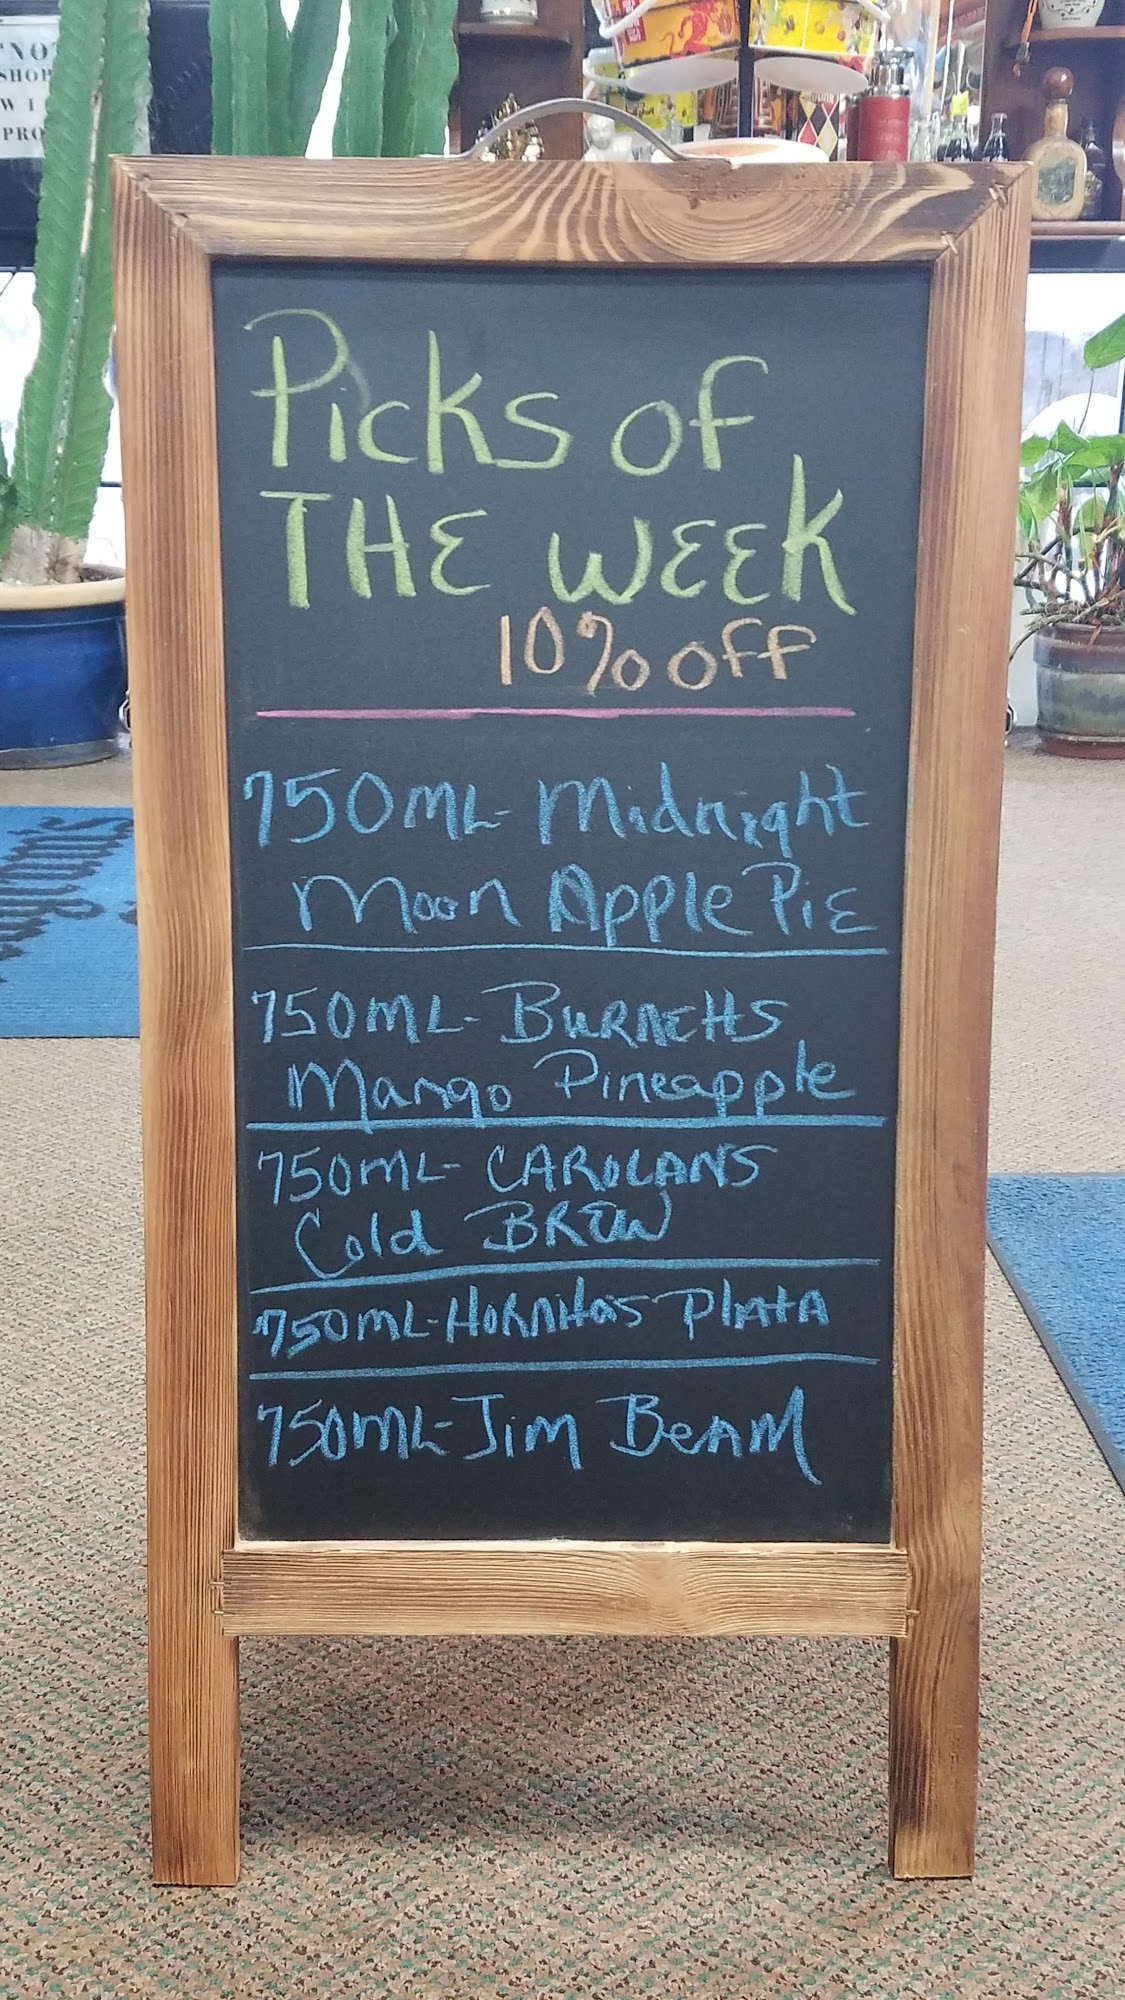 "NO
SHOP
WI
PRO
Picks of
THE WEEK
10% off
750ML- Midnight
Moon Apple Pie
750ML- BURNETTS
Mango Pineapple
750ML- CAROLANS
Cold BREW
750ML-HORNITOS PLATA
750ML-Jim BeAM